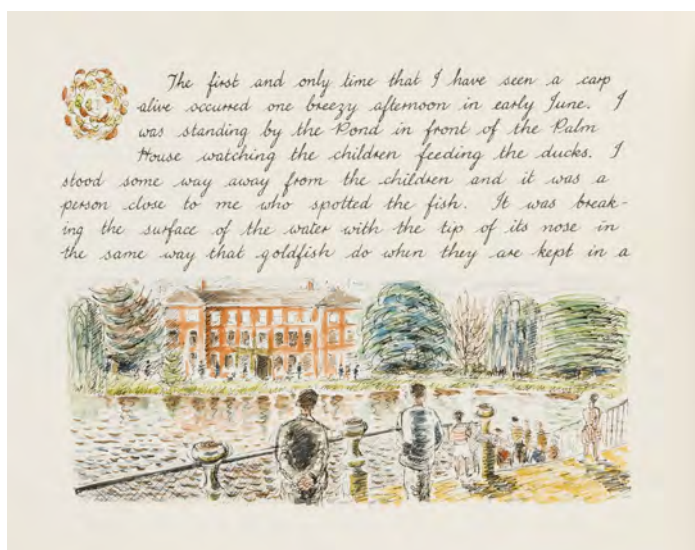 The first and only time that I have seen a carp
alive occurred one breezy afternoon in early June. I
was standing by the Pond in front of the Palm
House watching the children feeding the ducks. I
stood some way away from the children and it was a
person close to me who spotted the fish. It was break-
ing the surface of the water with the tip of its nose in
the same way that goldfish do when they are kept in a